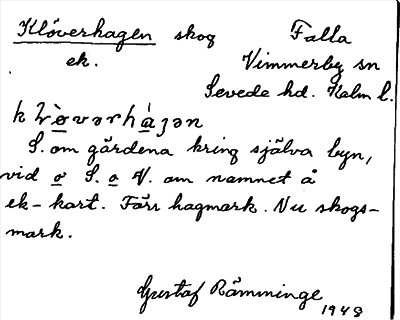 Klöverhagen skog Falla
ek. Vimmerby sn
Sevede hd. Kalm l.
klò̱vərhá̱ʒən
S. om gärdena kring själva byn,
vid o S. o V. om namnet å
ek-kart. Förr hagmark. Nu skogs-
mark.
Gustaf Rämminge
1948